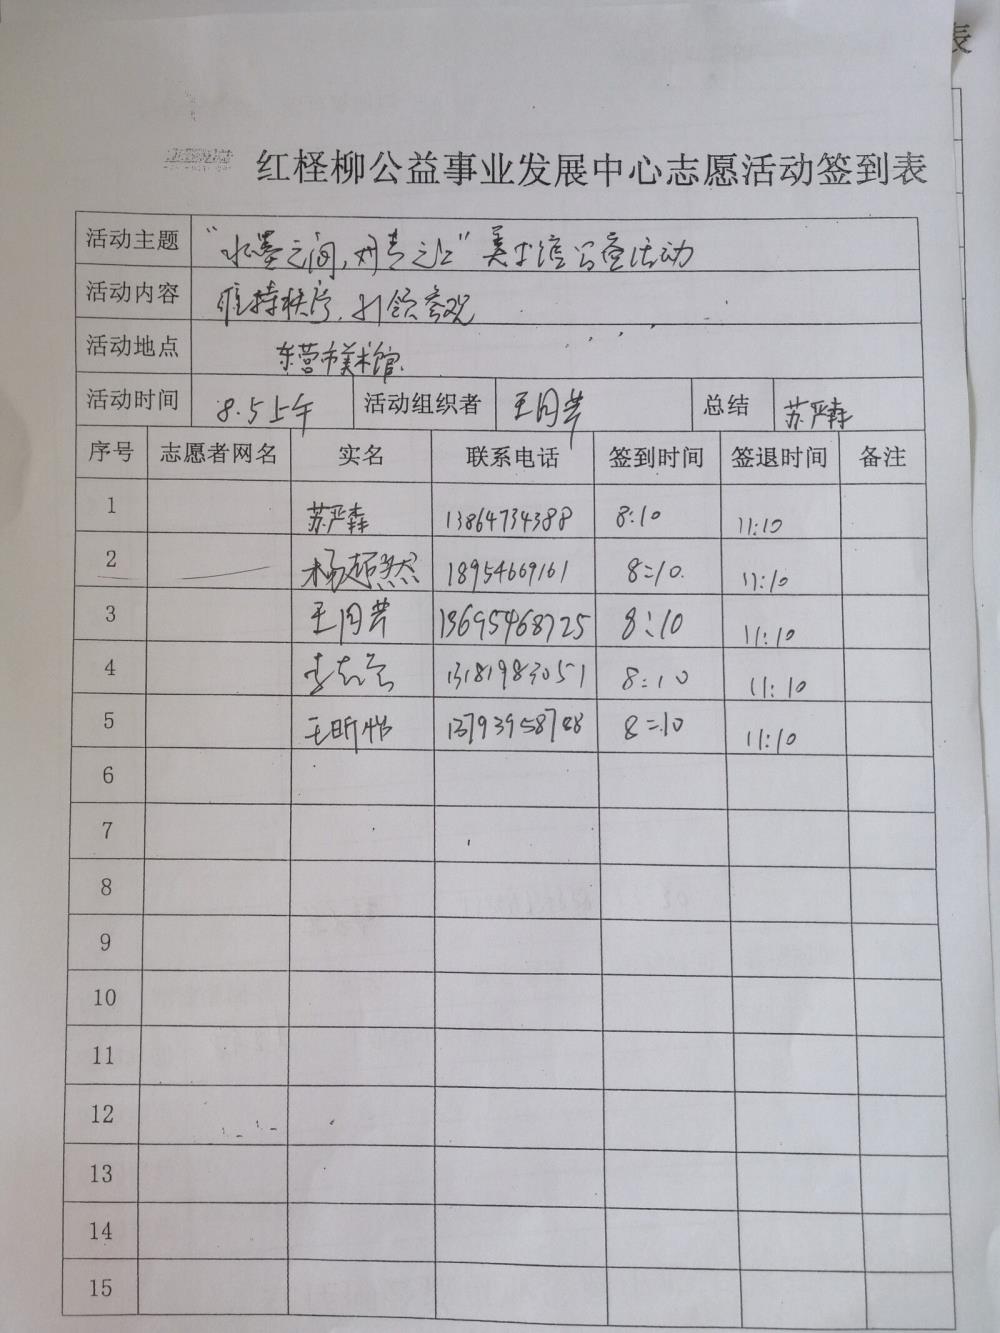 表
红柽柳公益事业发展中心志愿活动签到表
活动主题 "水墨之间，丹青之上"美术馆公益活动
活动内容 维持秩序，引领参观
活动地点 东营市美术馆
活动时间 8.5上午 活动组织者 王同芹 总结 苏严森
序号 志愿者网名 实名 联系电话 签到时间 签退时间 备注
1 苏严森 13864734388 8:10 11:10
2 杨超然 18954669161 8:10 11:10
3 王同芹 13695468725 8:10 11:10
4 13181983051 8:10 11:10
5 王昕怡 13793958788 8:10 11:10
6
7
8
9
10
11
12
13
14
15